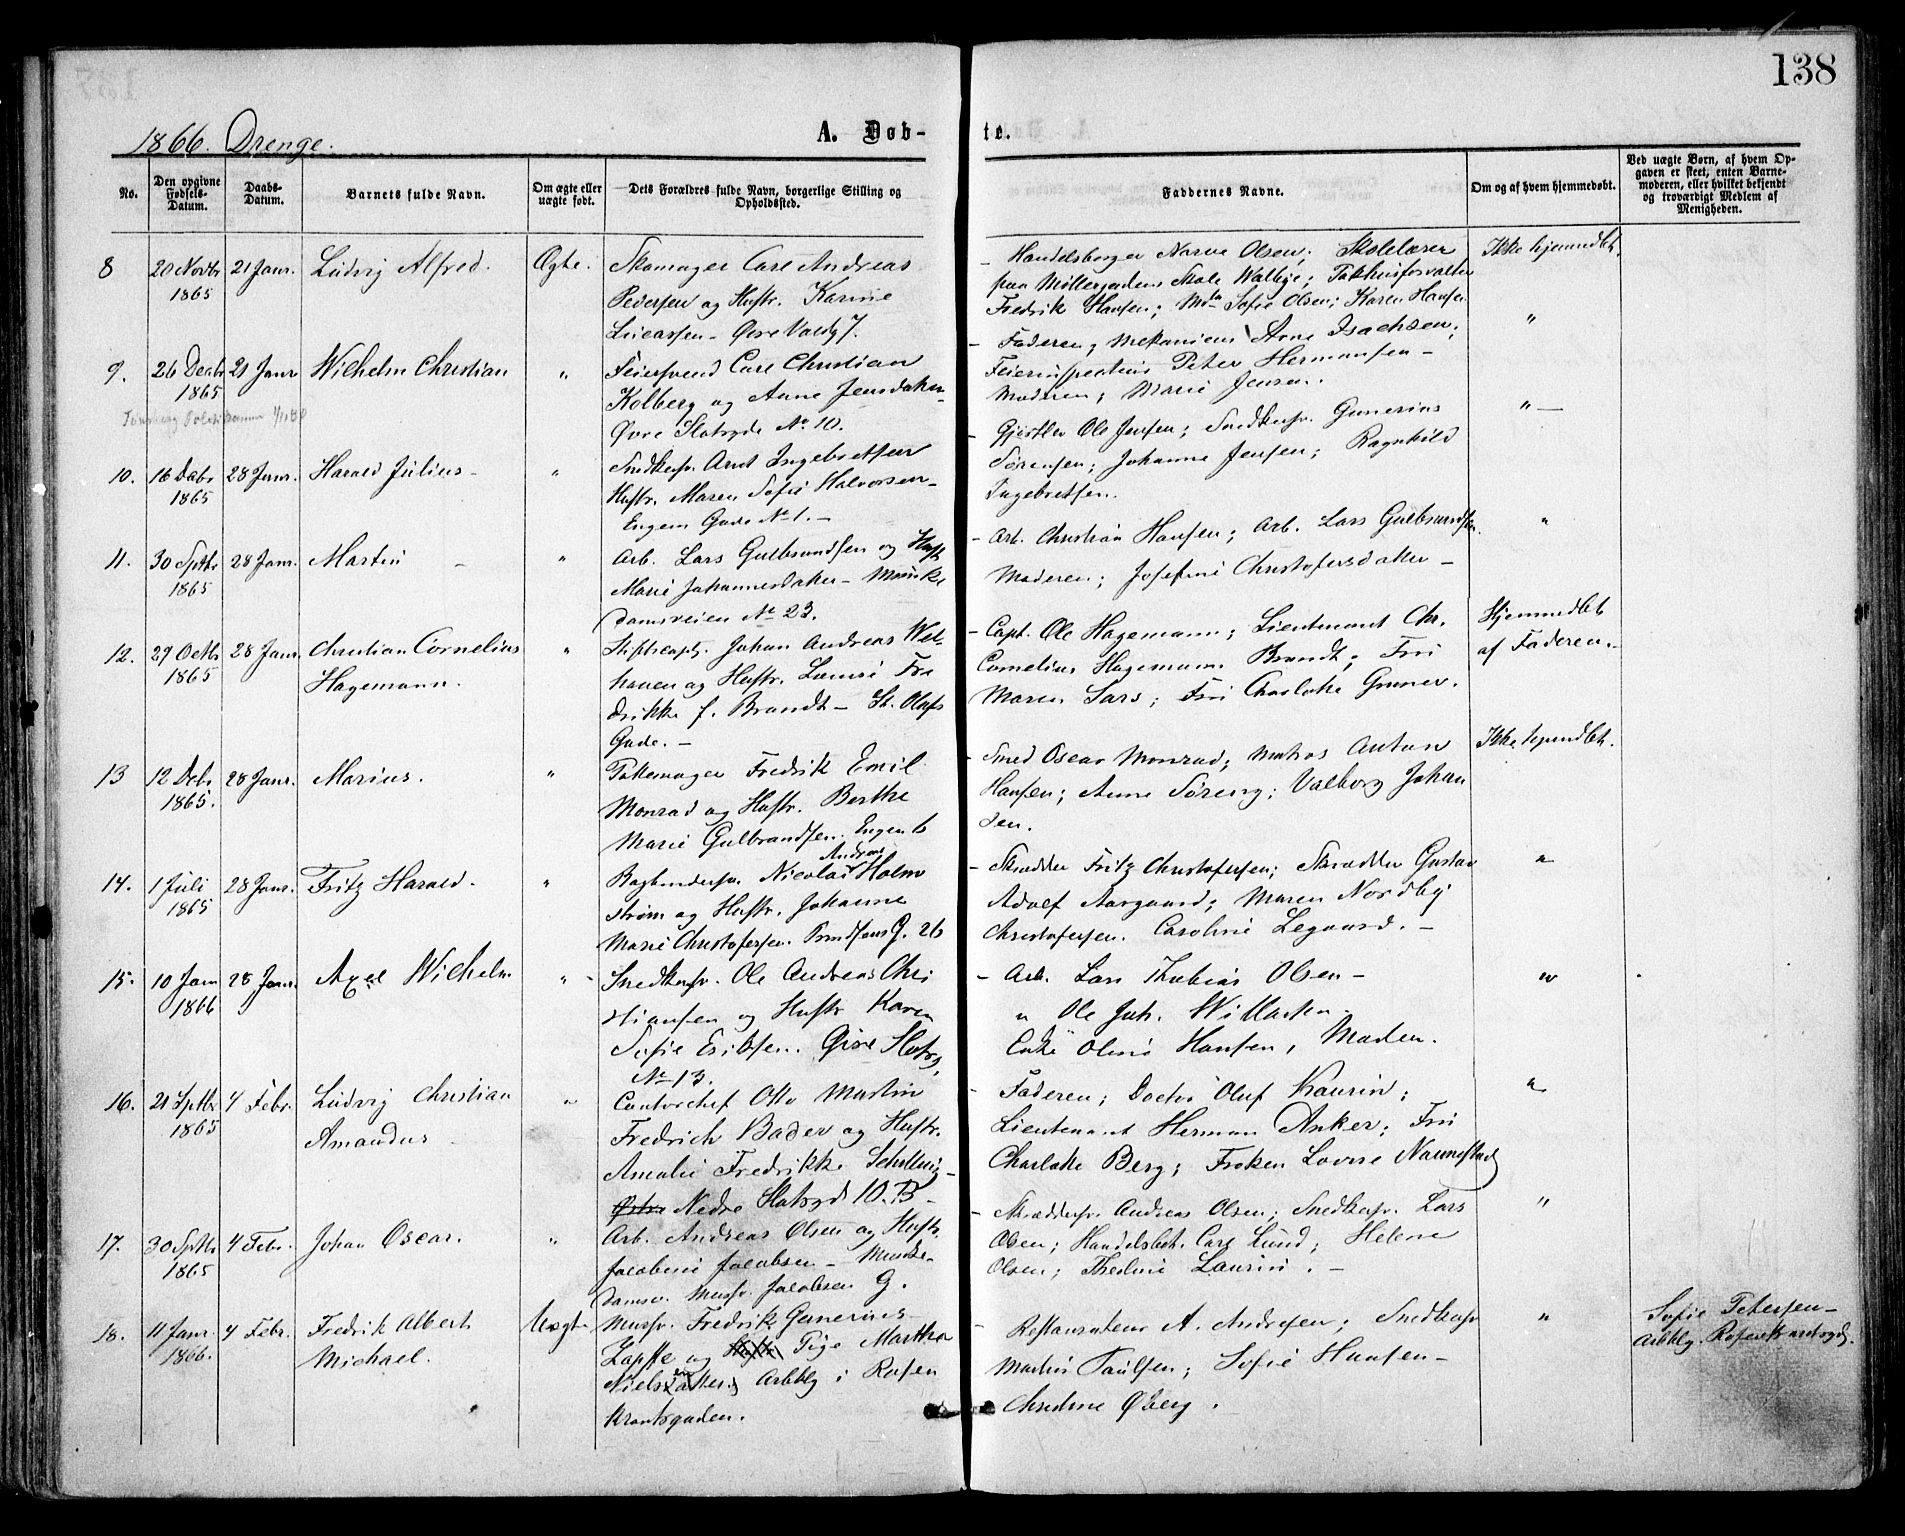 138
1866. Drenge. A. Døb- te.
No.
Den opgivne Fødsels-Datum.
Daabs-Datum.
Barnets fulde Navn.
Om ægte eller uægte født.
Dets Forældres fulde Navn, borgerlige Stilling og Opholdssted.
Faddernes Navne.
Om og af hvem hjemmedøbt.
Ved uægte Børn, af hvem Opgaven er skeet, enten Barnemoderen, eller hvilket bekjendt og troværdigt Medlem af Menigheden.
8 20 Novbr 1865 21 Janr. Ludvig Alfred. Ægte.
Skomager Carl Andreas
Pedersen og Hustr. Karine
Lucassen - Øvre Voldg 7.
- Handelsborger Narve Olsen; Skolelærer
paa Möllergadens Skole Walbye; Pakhusforvalter
Fredrik Hansen; Mda Sofie Olsen; Karen Hansen
Ikke hjemmedbt.
9. 26 Decbr 1865 21 Janr Wilhelm Christian "
Feiersvend Carl Christian
Kolberg og Anne Jensdatter
Øvre Slotsgde No 10.
- Faderen; Mekanicus Arne Isachsen;
Feierinspecteur Peter Hermansen -
Moderen; Marie Jensen.
"
10. 16 Decbr 1865 28 Janr. Harald Julius - "
Snedkersv. Arnt Ingebretsen
Hustr. Maren Sofie Halvorsen -
Engens Gade No 1. -
- Gjørtler Ole Jensen; Snedkersv. Gunerius
Sørensen; Johanne Jensen; Ragnhild
Ingebretsen.
" -
11. 30 Septbr 1865 28 Janr. Martin - "
Arb. Lars Gulbrandsen og Hustr
Marie Johannesdatter - Munke
damsveien No 23.
- Arb. Christian Hansen; Arb. Lars Gulbrandsen.
Moderen; Josefine Christofersdatter -
"
12. 29 Octbr 1865 28 Janr. Christian Cornelius "
Hagemann.
Stiftscapl. Johan Andreas Wel-
haven og Hustr. Louise Fre
drikke f. Brandt - St. Olafs
Gade. -
- Capt. Ole Hagemann; Lieutenant Chr.
Cornelius Hagemann Brandt; Fru
Maren Sars; Fru Charlotte Gruner.
Hjemmedbt
af Faderen.
13 12 Debr 1865. 28 Janr. Marius. "
Takemager Fredrik Emil
Monrad og Hustr. Berthe
Marie Gulbrandsen. Engen 6
- Smed Oscar Monrad; Matros Anton
Hansen; Anne Søreng; Valborg Johan
sen.
Ikke hjemdbt.
14. 1 Juli 1865 28 Janr. Fritz Harald. "
Bogbindersv. Nicolai Andreas Holm
strøm og Hustr. Johanne
Marie Christofersen. G. 26
- Skrædder Fritz Christofersen; Skrædder Gustav
Adolf Aargaard; Maren Nordby
Christofersen. Caroline Legaard. -
"
15. 10 Jan 1866 28 Janr. Axel Wilhelm " -
Snedkersv. Ole Andreas Chri
stiansen og Hustr Karen
Sofie Eriksen. Øvre Slotsg
No 13.
- Arb. Lars Thobias Olsen -
" Ole Joh.
Enke Oline Hansen, Moderen.
"
16. 21 Septbr 1865 4 Febr. Ludvig Christian "
Amandus -
Contorchef Otto Martin
Fredrich Bader og Hustr.
Amalie Fredrikke Schilling -
Østre Nedre Slotsgd 10. B -
- Faderen; Doctor Oluf Kaurin;
Lieutenant Herman Anker; Fru
Charlotte Berg; Frøken Lovise Naumestad
"
17. 30 Septbr 1865 4 Febr. Johan Oscar. "
Arb. Andreas Olsen og Hustr.
Jacobine Jacobsen - Munke-
damsv. Mursv. Jacobsen G.
- Skræddersv. Andreas Olsen; Snedkersv. Lars
Olsen; Handelsbet. Carl Lund; Helene
Olsen; Thedine Laurin. -
"
18. 11 Janr. 1866. 4 Febr. Fredrik Albert Uægte
Michael.
Mursv. Fredrik Gunerius
Zapffe og Pige Martha
Nielsen Arbbg i Rosen
krantsgaden.
- Restaurateur A. Andresen; Snedkersv
Martin Paulsen; Sofie Hansen -
Christine Øberg.
"
Sofie Petersen -
Arbbg. Rosenkrantsgd.